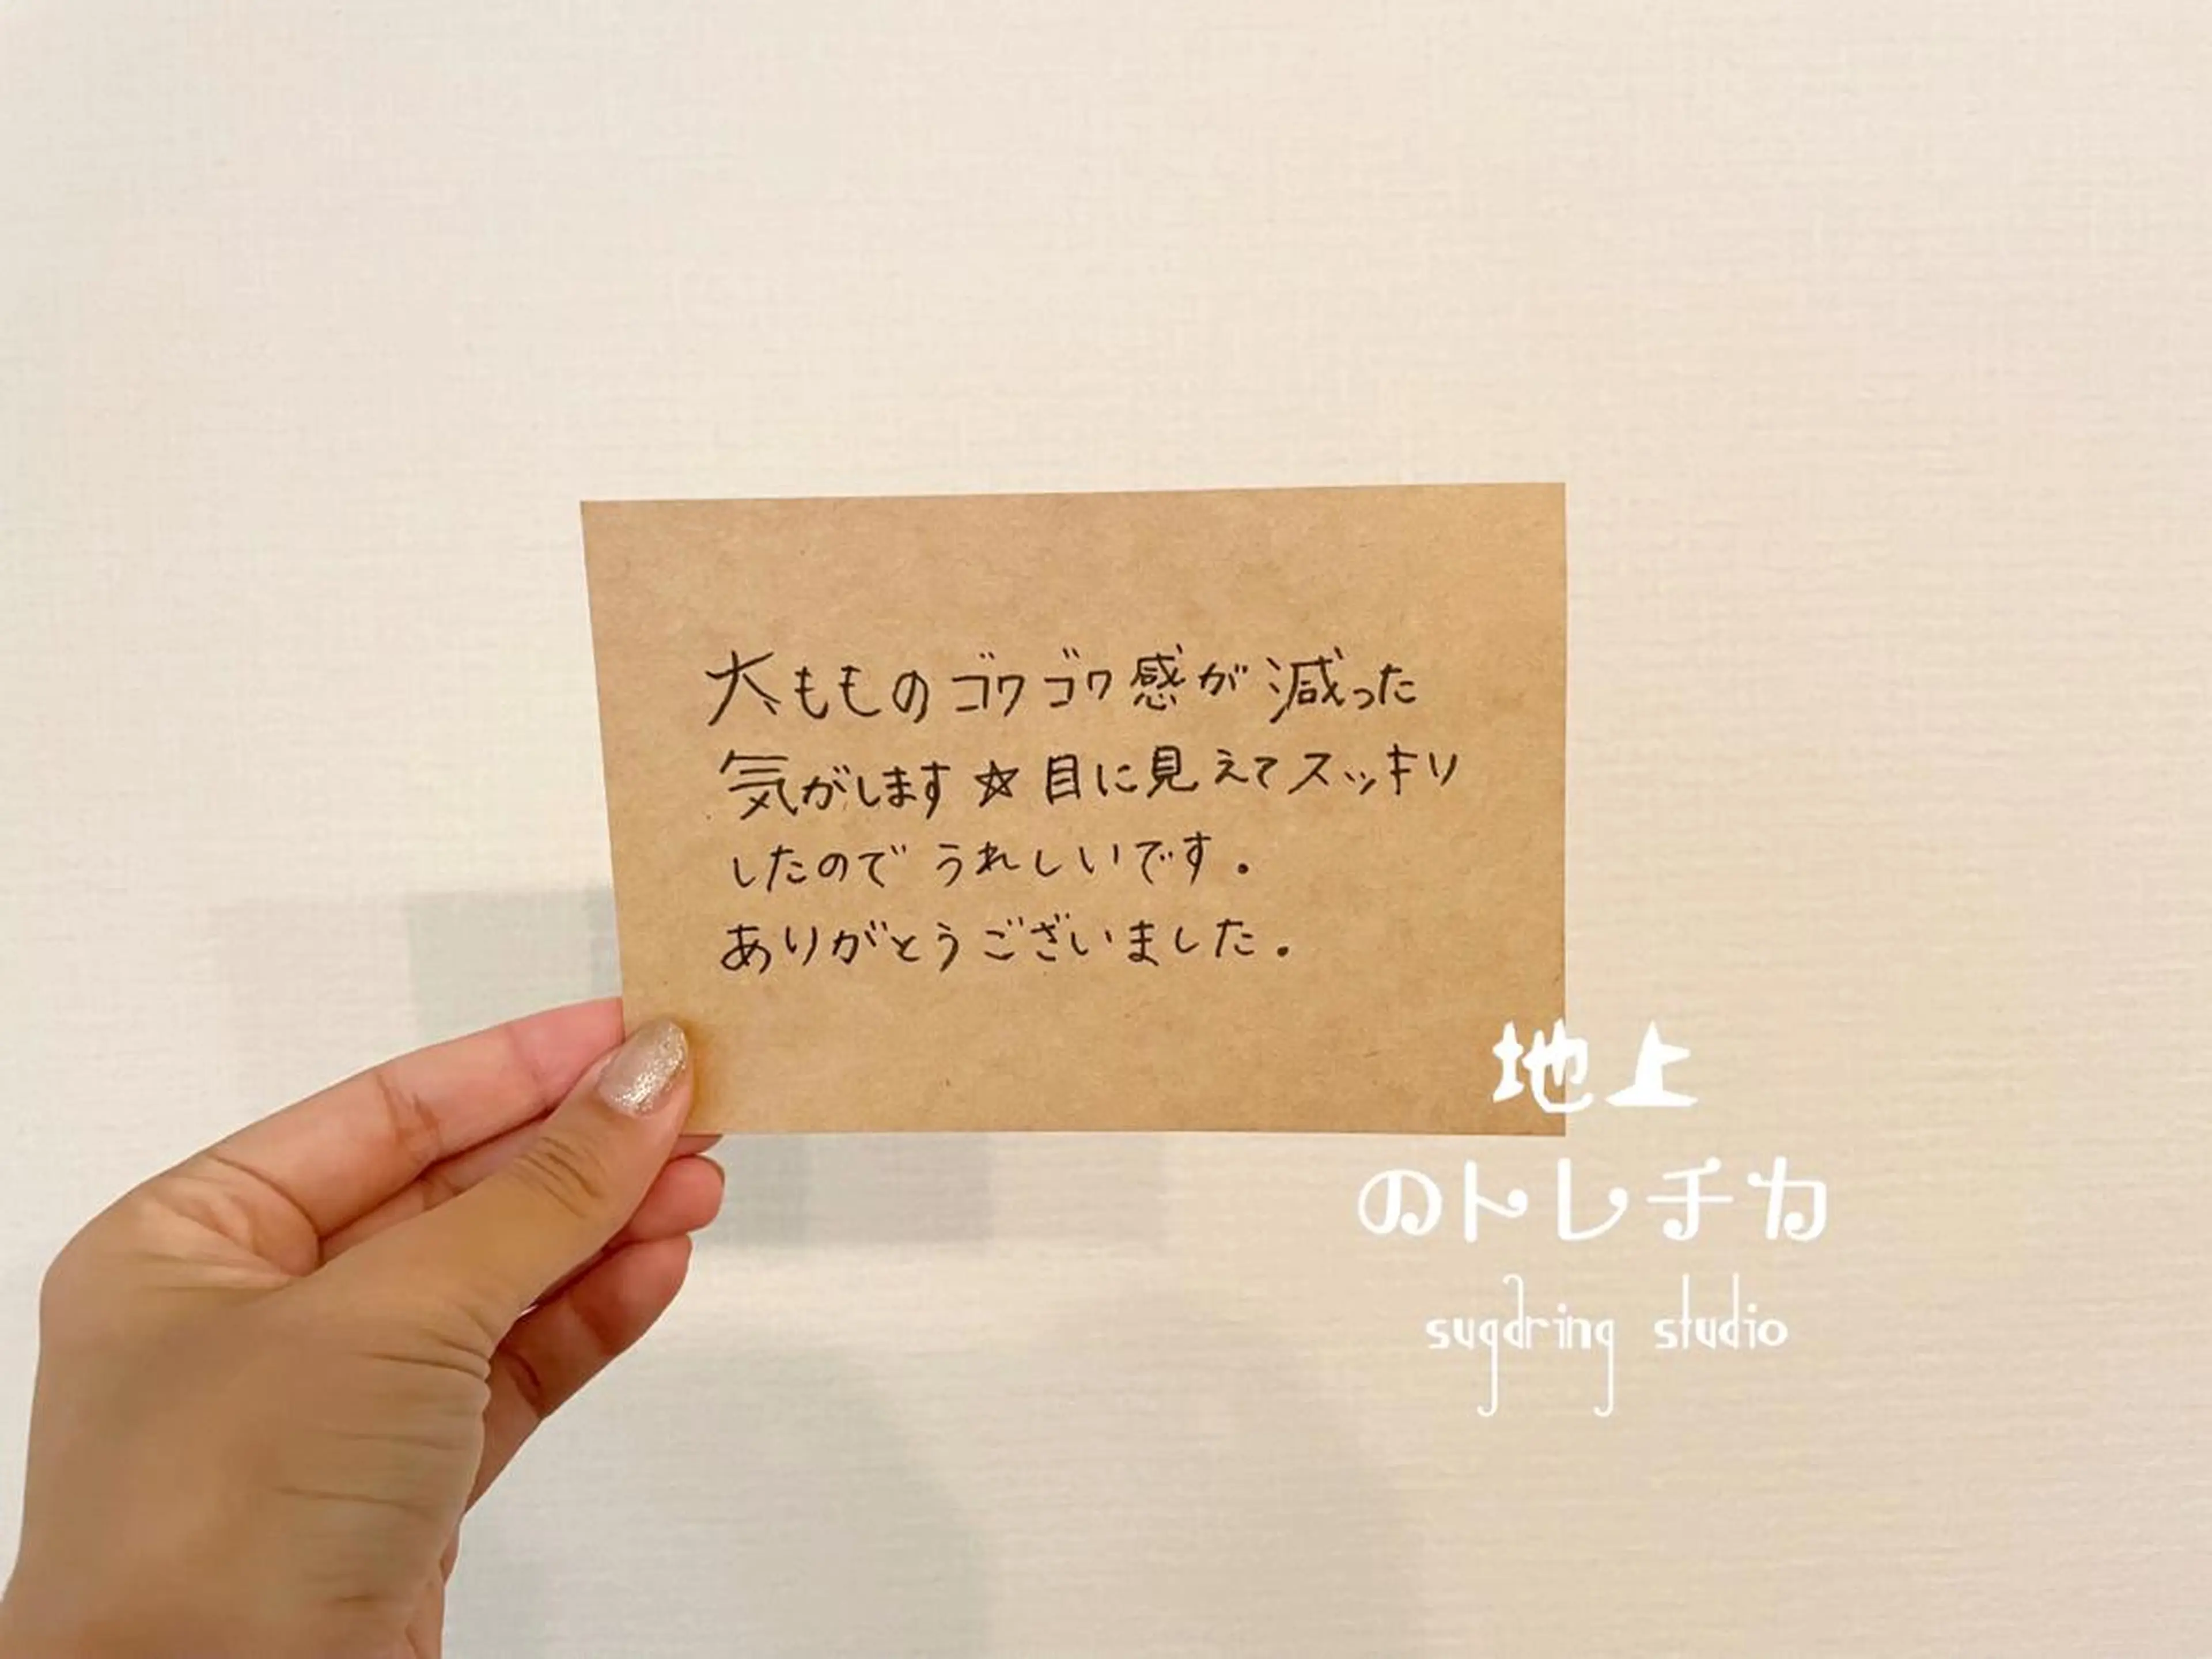 太もものゴワゴワ感が減った
気がします☆目に見えてスッキリ
したのでうれしいです。
ありがとうございました。
地上
のトレチカ
sugaring studio